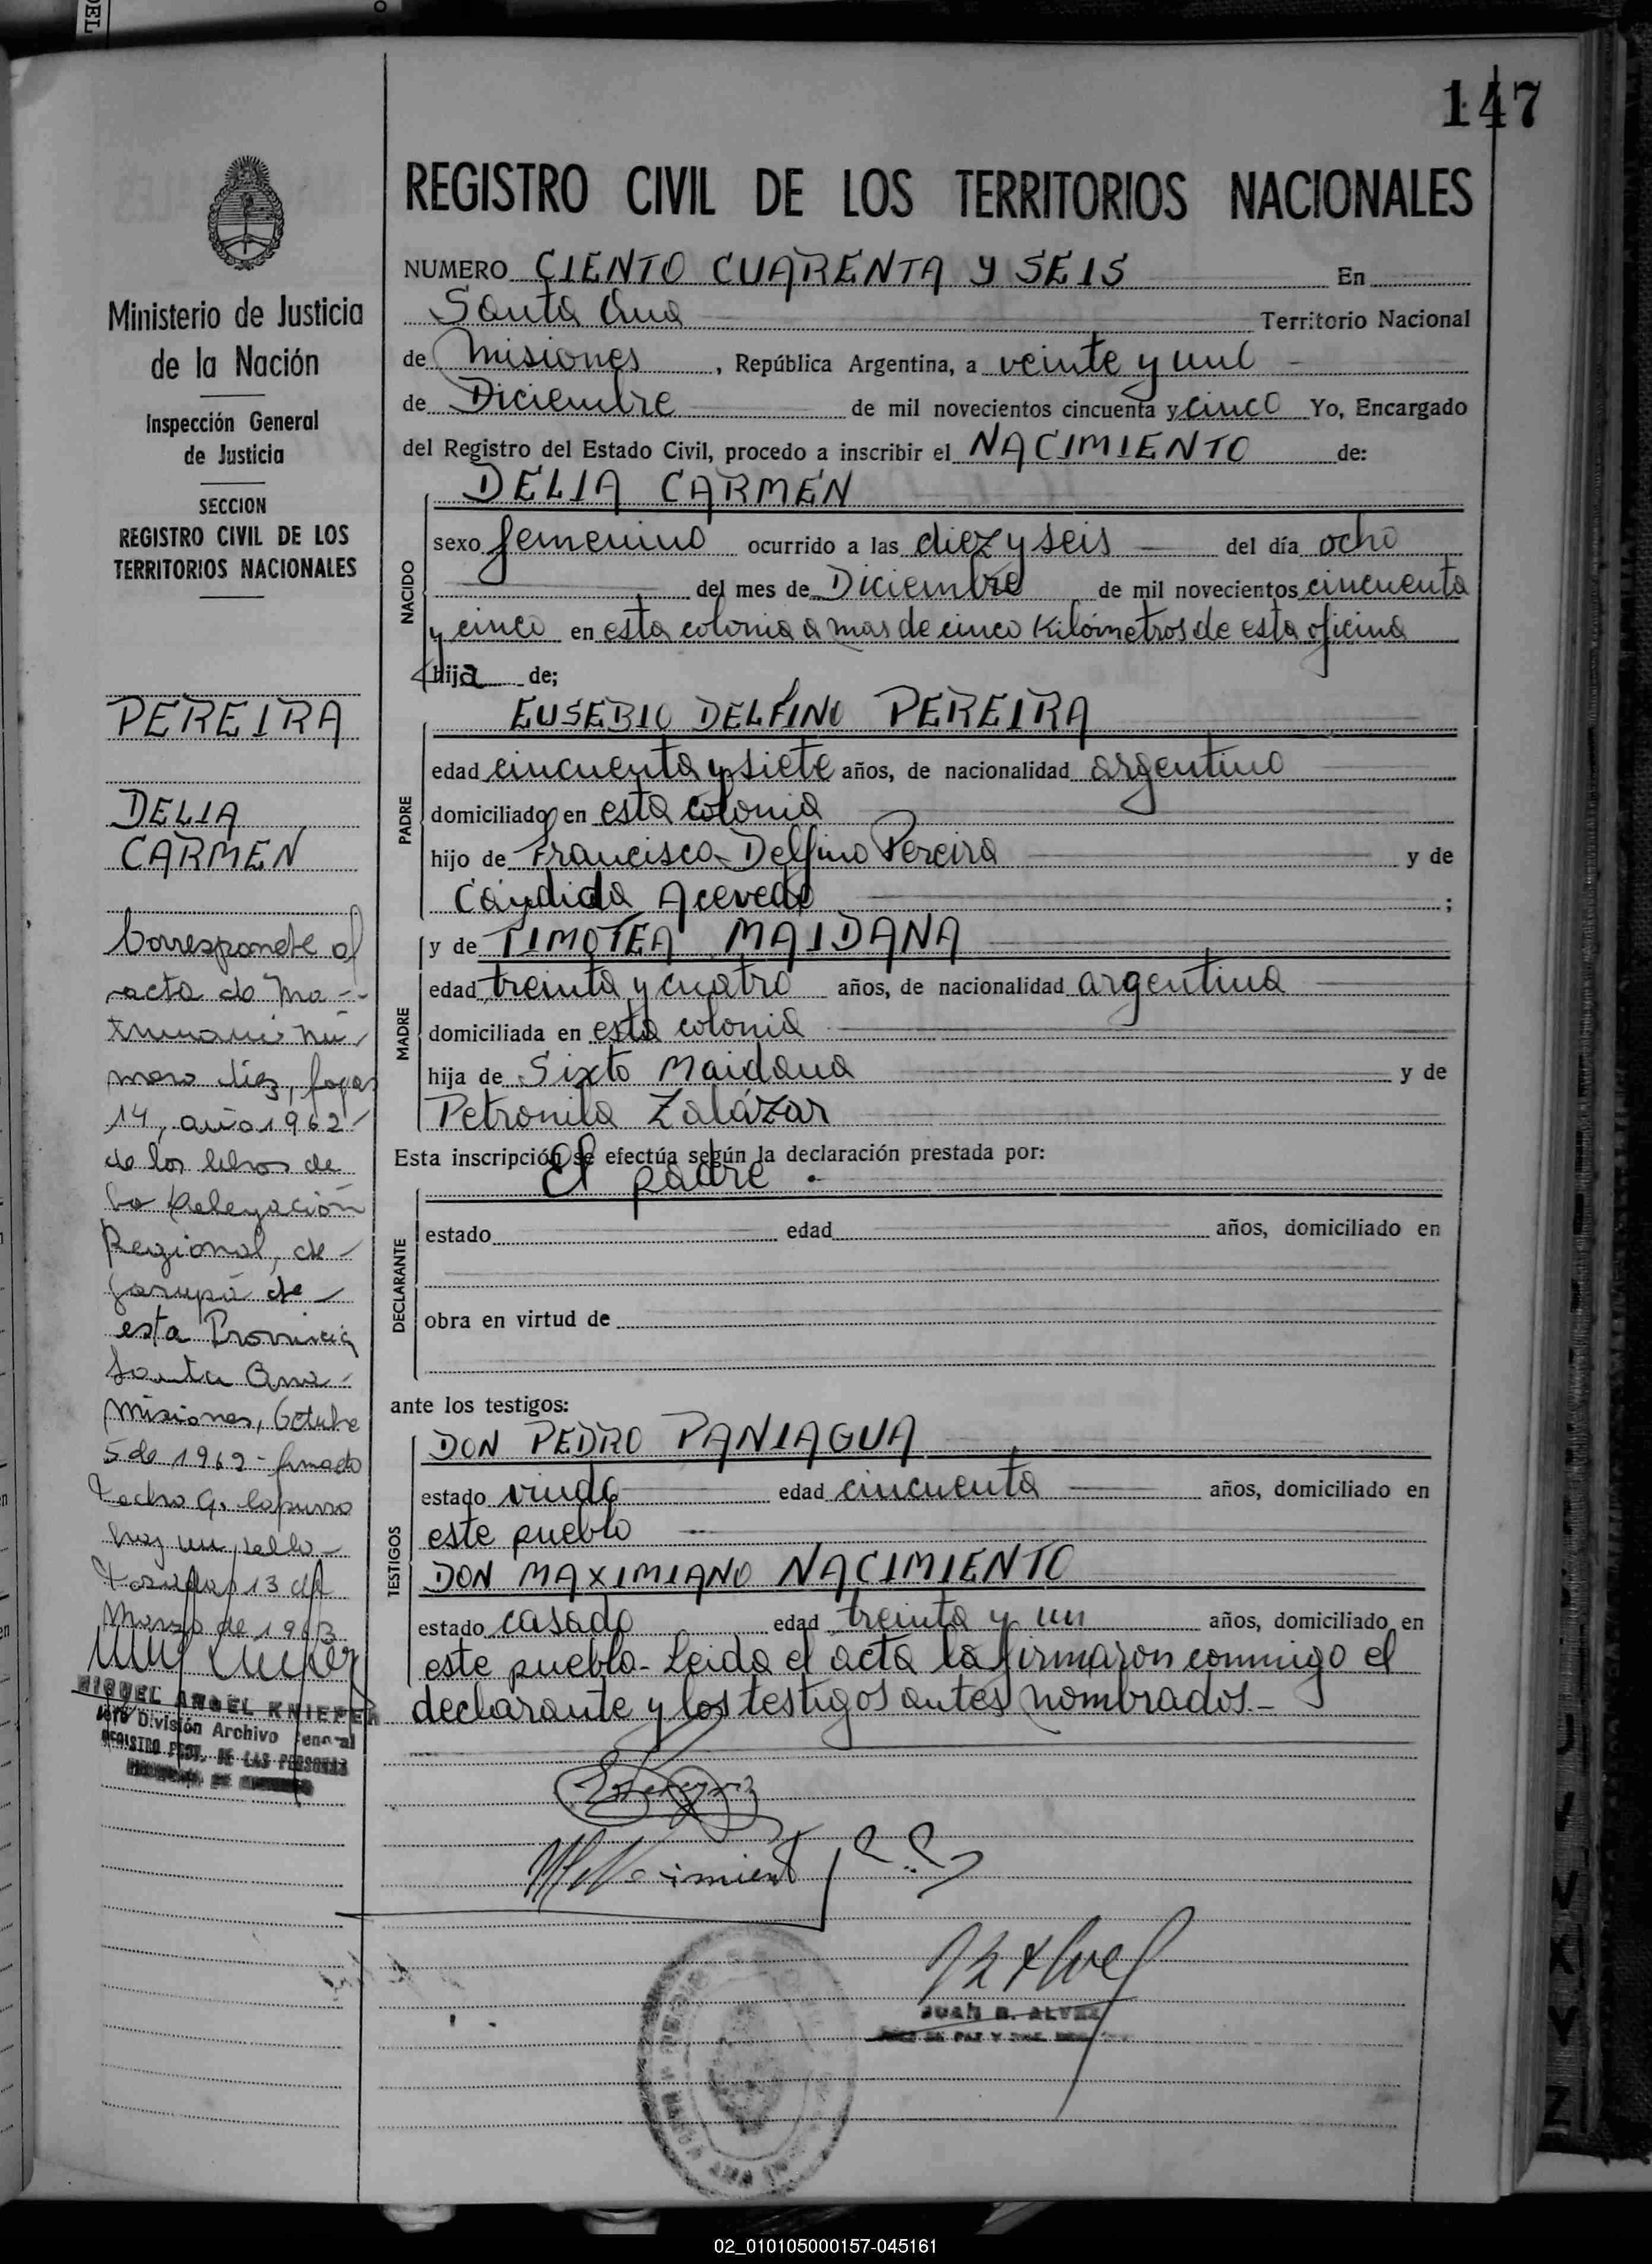 147
REGISTRO CIVIL DE LOS TERRITORIOS NACIONALES
NUMERO CIENTO CUARENTA Y SEIS En
Santa Ana Territorio Nacional
de Misiones, República Argentina, a veinte y uno
de Diciembre de mil novecientos cincuenta y cinco Yo, Encargado
del Registro del Estado Civil, procedo a inscribir el NACIMIENTO de:
DELIA CARMEN
NACIDO
sexo femenino ocurrido a las diez y seis del día ocho
del mes de Diciembre de mil novecientos cincuenta
y cinco en esta colonia a mas de cinco Kilómetros de esta oficina
hija de;
PADRE
EUSEBIO DELFINO PEREIRA
edad cincuenta y siete años, de nacionalidad argentino
domiciliado en esta colonia
hijo de Francisco Delfino Pereira y de
Cándida Acevedo ;
MADRE
y de TIMOTEA MAIDANA
edad treinta y cuatro años, de nacionalidad argentina
domiciliada en esta colonia
hija de Sixto Maidana y de
Petronila Zalázar
Esta inscripción se efectúa según la declaración prestada por:
El padre.
DECLARANTE
estado edad años, domiciliado en
obra en virtud de
ante los testigos:
TESTIGOS
DON PEDRO PANIAGUA
estado viudo edad cincuenta años, domiciliado en
este pueblo
DON MAXIMIANO NACIMIENTO
estado casado edad treinta y un años, domiciliado en
este pueblo- Leida el acta la firmaron conmigo el
declarante y los testigos antes nombrados.-
JUAN B. ALVEZ
Ministerio de Justicia
de la Nación
Inspección General
de Justicia
SECCION
REGISTRO CIVIL DE LOS
TERRITORIOS NACIONALES
PEREIRA
DELIA
CARMEN
Corresponde al
acta de Ma-
trimonio nú
mero diez, fojas
14, año 1962
de los libros de
la Delegación
Regional, de
Garupá de
esta Provincia
Santa Ana
Misiones, Octubre
5 de 1962 - firmado
Pedro G. Capurro
hay un sello-
Posadas 13 de
Marzo de 1963
MIGUEL ANGEL KNIEPER
Jefe División Archivo General
REGISTRO PROV. DE LAS PERSONAS
02_010105000157-045161